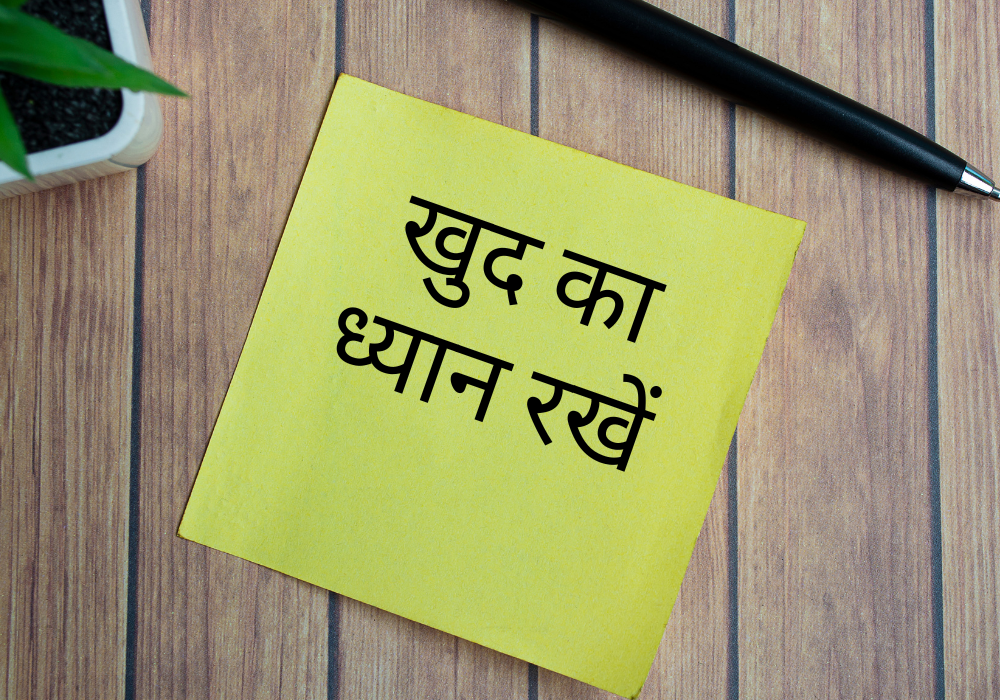 खुद का
ध्यान रखें